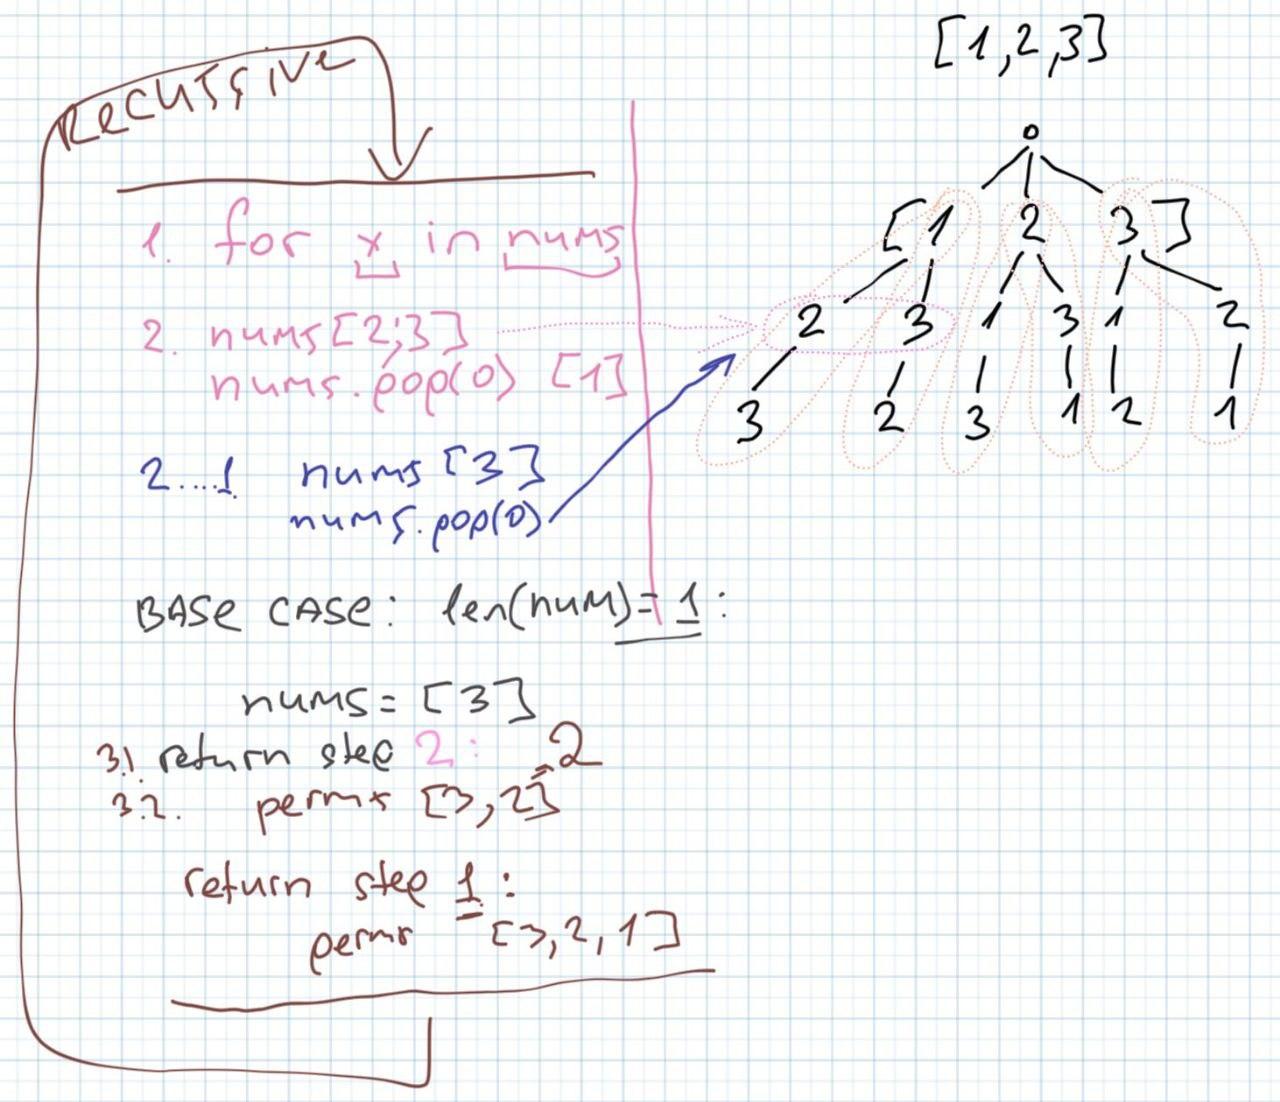 [1,2,3]
RECURSIVE
1. for x in nums
2. nums[2;3]
nums.pop(0) [1]
2....1 nums [3]
nums.pop(0)
BASE CASE: len(num)=1:
nums=[3]
3.1. return step 2: 2
3.2. perms [3,2]
return step 1:
perms [3,2,1]
0
[1 2 3]
2 3 1 3 1 2
3 2 3 1 2 1